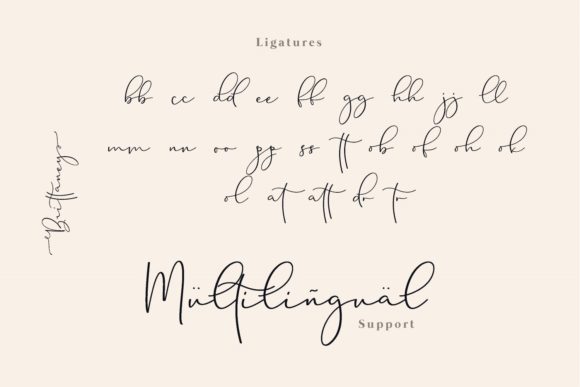 Ligatures
bb cc dd ee ff gg hh jj ll
mm nn oo pp ss tt ob of oh ok
ol at att dr tr
Brittaneys
Mültilingüäl
Support